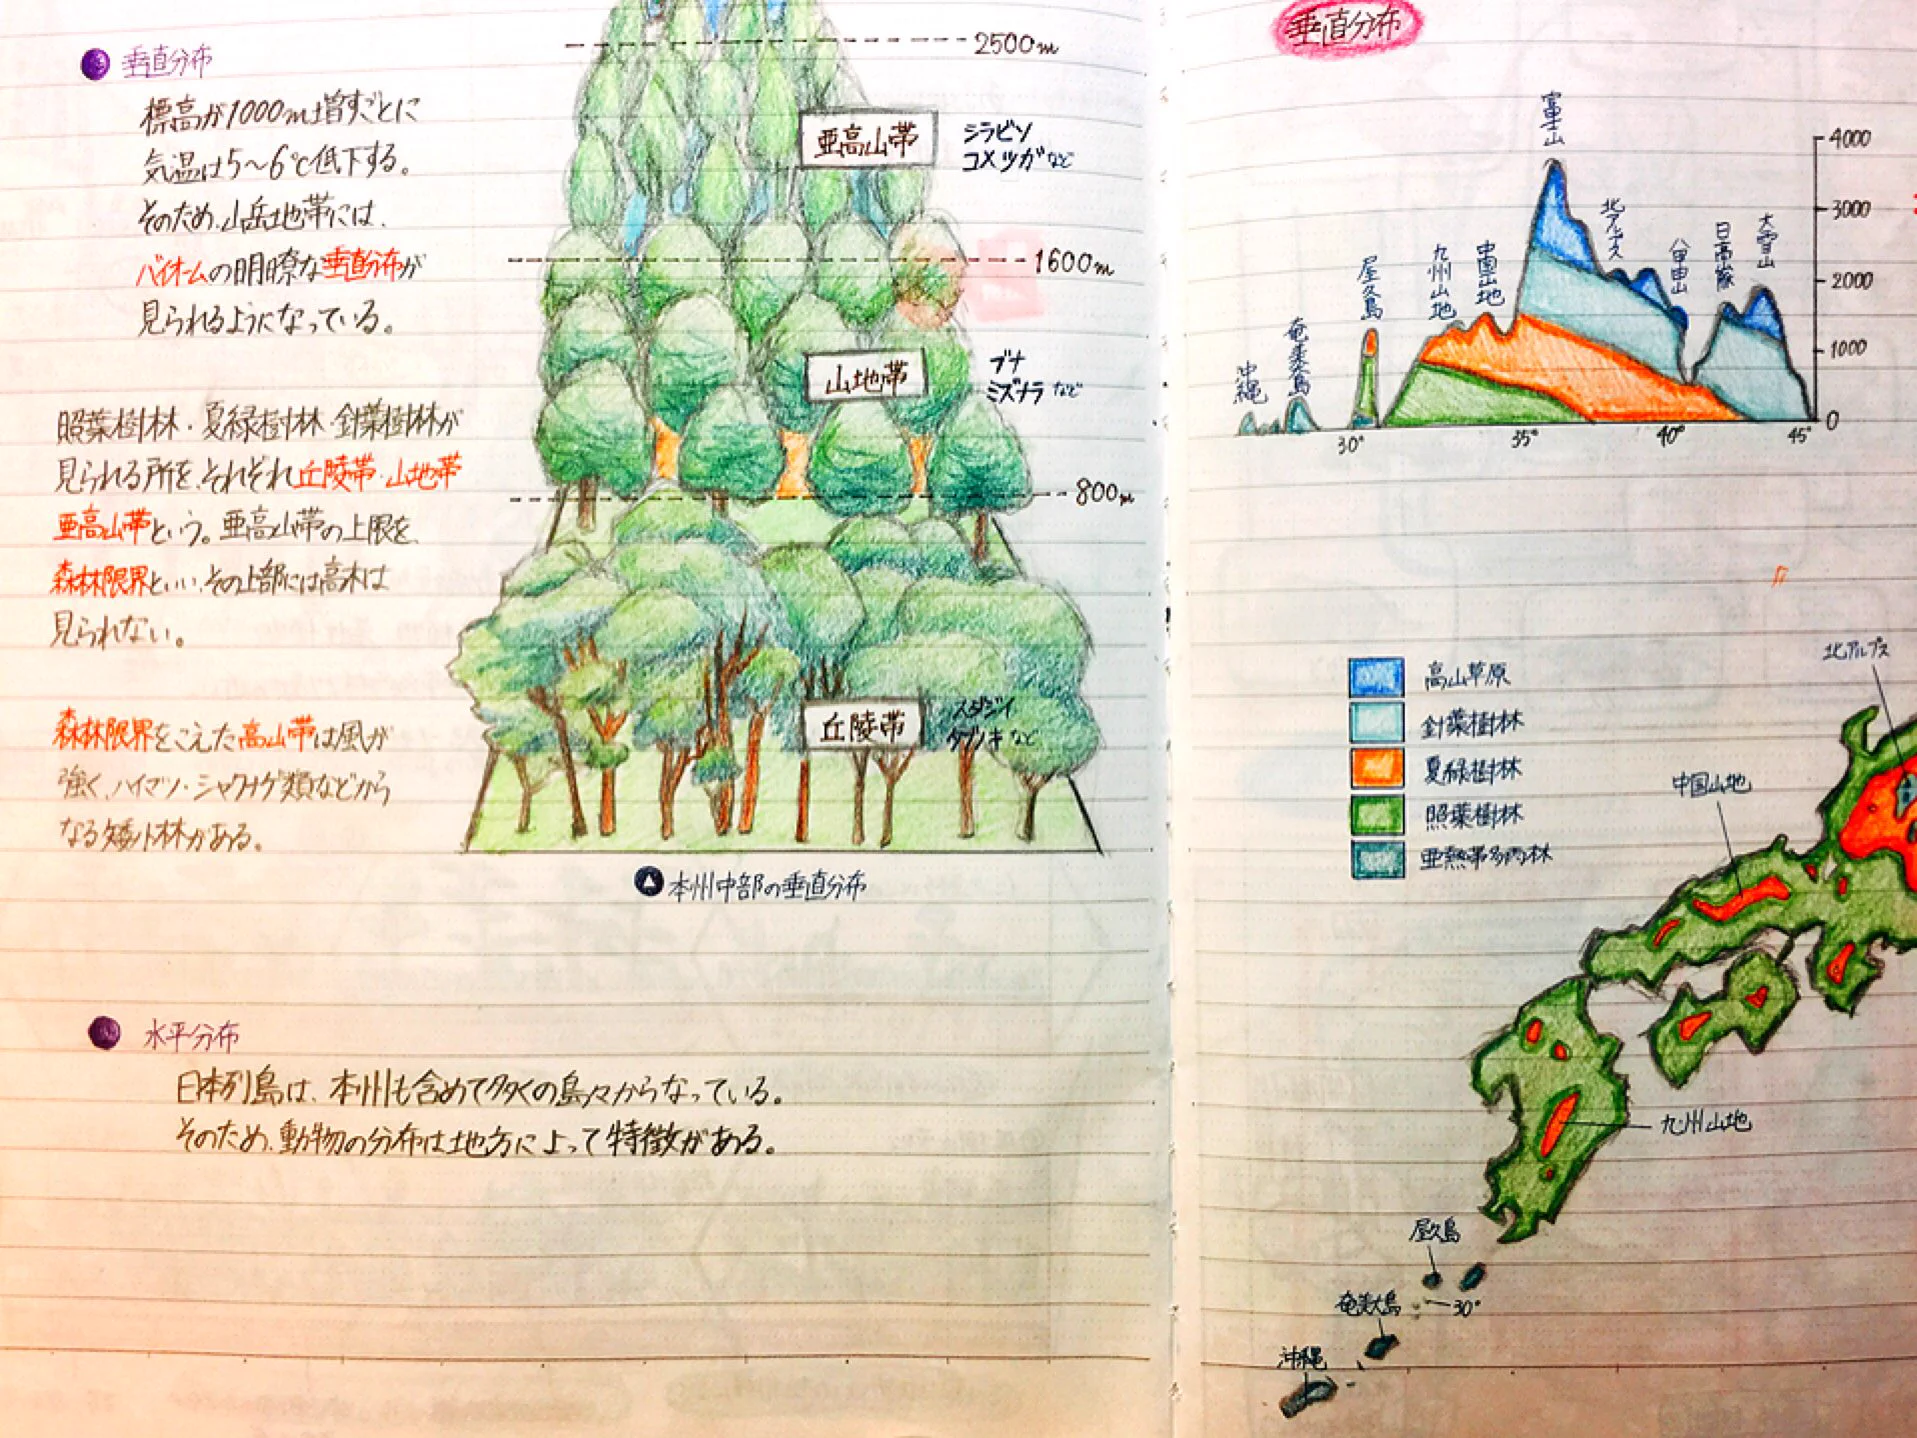 垂直分布
標高が1000m増すごとに
気温は5〜6℃低下する。
そのため、山岳地帯には、
バイオームの明瞭な垂直分布が
見られるようになっている。
照葉樹林・夏緑樹林・針葉樹林が
見られる所を、それぞれ丘陵帯・山地帯
亜高山帯という。亜高山帯の上限を、
森林限界といい、その上部には高木は
見られない。
森林限界をこえた高山帯は風が
強く、ハイマツ・シャクナゲ類などから
なる矮小林がある。
2500m
亜高山帯
シラビソ
コメツガなど
1600m
山地帯
ブナ
ミズナラなど
800m
丘陵帯
スダジイ
タブノキなど
本州中部の垂直分布
水平分布
日本列島は、本州も含めて多くの島々からなっている。
そのため、動物の分布は地方によって特徴がある。
垂直分布
沖縄
奄美大島
屋久島
九州山地
中国山地
富士山
北アルプス
八甲田山
日高山脈
大雪山
4000
3000
2000
1000
0
30°
35°
40°
45°
高山草原
針葉樹林
夏緑樹林
照葉樹林
亜熱帯多雨林
北アルプス
中国山地
九州山地
屋久島
30°
奄美大島
沖縄